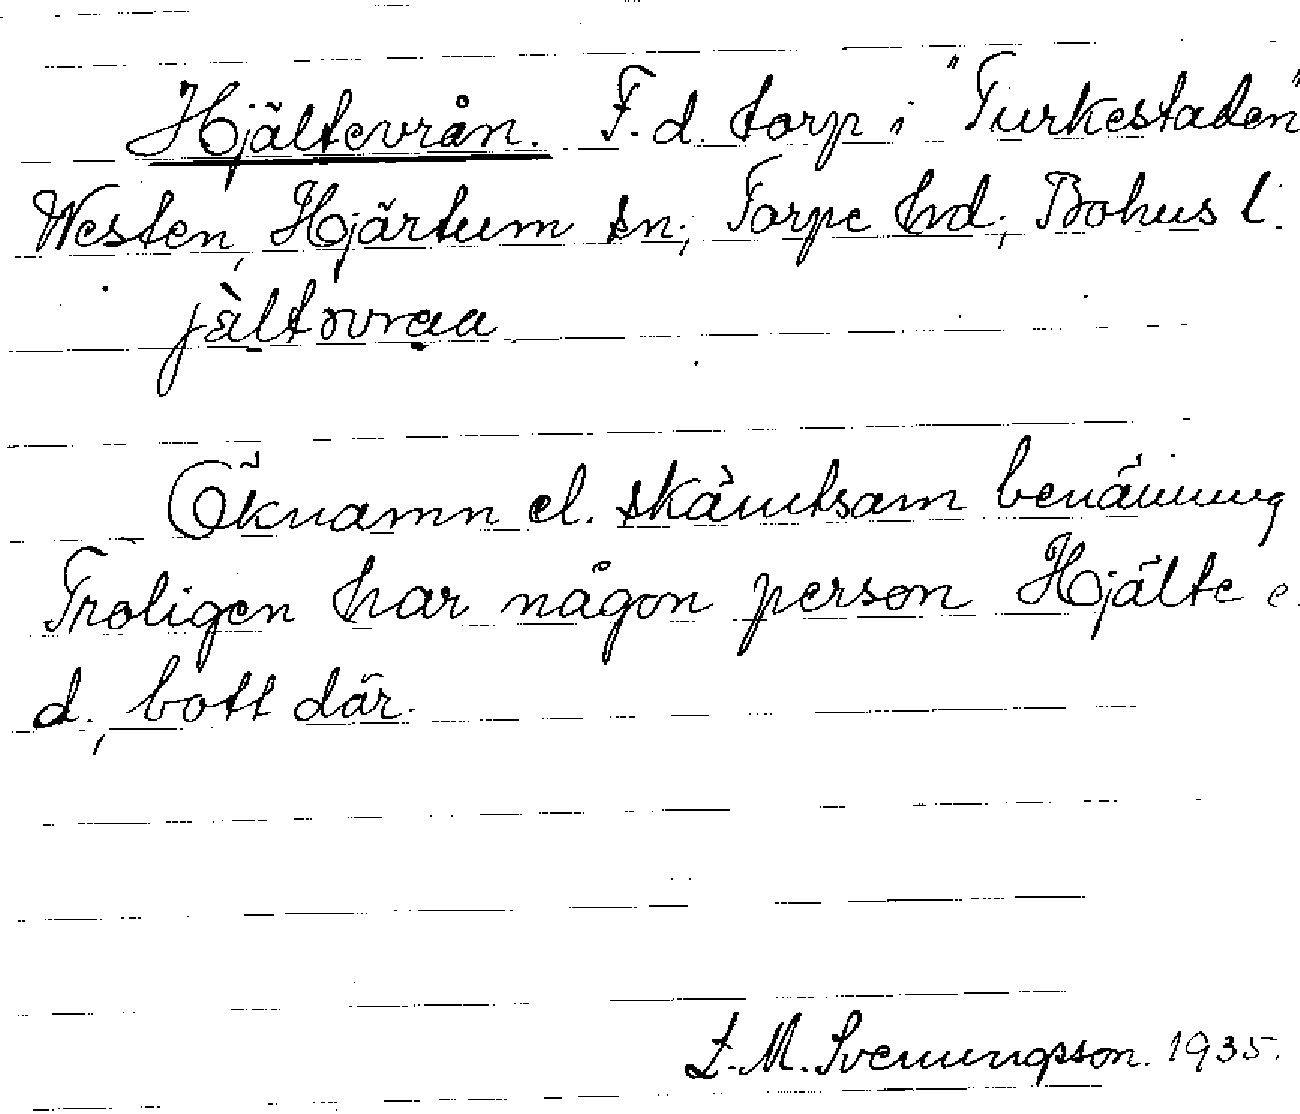 Hjältevrån. F. d. torp i "Turkestaden"
Westen, Hjärtum sn; Torpe hd; Bohus l.
jältovraa
Öknamn el. skämtsam benämning
Troligen har någon person Hjälte e.
d., bott där.
L. M. Svenungsson. 1935.